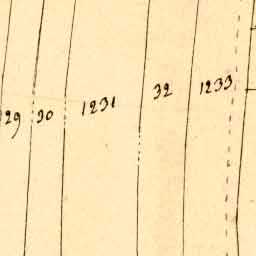 29 30 1231 32 1233